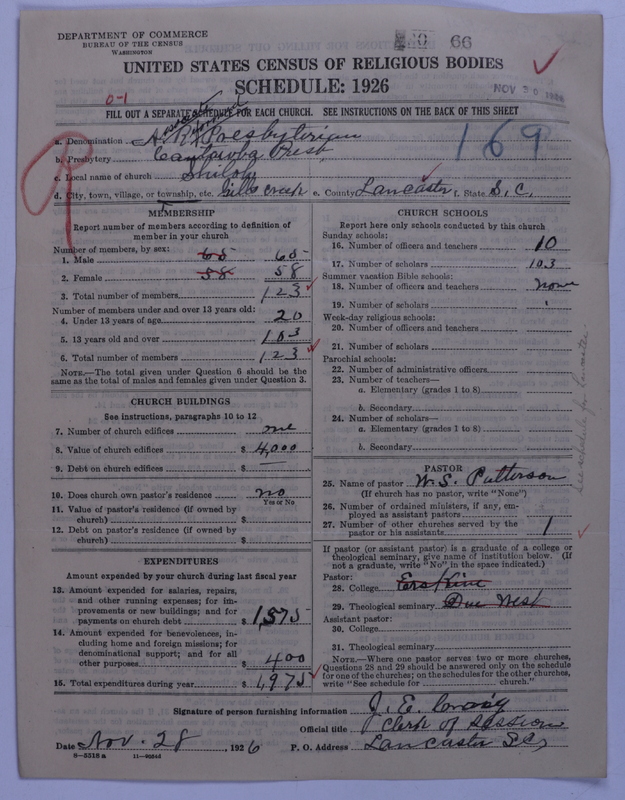 DEPARTMENT OF COMMERCE
BUREAU OF THE CENSUS
WASHINGTON
66
UNITED STATES CENSUS OF RELIGIOUS BODIES
SCHEDULE: 1926
NOV 30 1926
0-1
FILL OUT A SEPARATE SCHEDULE FOR EACH CHURCH. SEE INSTRUCTIONS ON THE BACK OF THIS SHEET
169
a. Denomination A. R. Presbyterian
b. Presbytery Catawba Presb
c. Local name of church Shiloh
d. City, town, village, or township, etc. Gills Creek e. County Lancaster f. State S. C.
MEMBERSHIP
Report number of members according to definition of member in your church
Number of members, by sex:
1. Male 65 65
2. Female 58 58
3. Total number of members 123
Number of members under and over 13 years old:
4. Under 13 years of age 20
5. 13 years old and over 103
6. Total number of members 123
NOTE.—The total given under Question 6 should be the same as the total of males and females given under Question 3.
CHURCH BUILDINGS
See instructions, paragraphs 10 to 12
7. Number of church edifices one
8. Value of church edifices $ 4,000
9. Debt on church edifices $ —
10. Does church own pastor's residence no
Yes or No
11. Value of pastor's residence (if owned by church) $
12. Debt on pastor's residence (if owned by church) $
EXPENDITURES
Amount expended by your church during last fiscal year
13. Amount expended for salaries, repairs, and other running expenses; for improvements or new buildings; and for payments on church debt $ 1,575
14. Amount expended for benevolences, including home and foreign missions; for denominational support; and for all other purposes $ 400
15. Total expenditures during year $ 1,975
CHURCH SCHOOLS
Report here only schools conducted by this church
Sunday schools:
16. Number of officers and teachers 10
17. Number of scholars 103
Summer vacation Bible schools:
18. Number of officers and teachers none
19. Number of scholars
Week-day religious schools:
20. Number of officers and teachers
21. Number of scholars
Parochial schools:
22. Number of administrative officers
23. Number of teachers—
a. Elementary (grades 1 to 8)
b. Secondary
24. Number of scholars—
a. Elementary (grades 1 to 8)
b. Secondary
See schedule for Lancaster
PASTOR
25. Name of pastor W. S. Patterson
(If church has no pastor, write "None")
26. Number of ordained ministers, if any, employed as assistant pastors
27. Number of other churches served by the pastor or his assistants 1
If pastor (or assistant pastor) is a graduate of a college or theological seminary, give name of institution below. (If not a graduate, write "No" in the space indicated.)
Pastor:
28. College Erskine
29. Theological seminary Due West
Assistant pastor:
30. College
31. Theological seminary
NOTE.—Where one pastor serves two or more churches, Questions 28 and 29 should be answered only on the schedule for one of the churches; on the schedules for the other churches, write "See schedule for ______ church."
Signature of person furnishing information J. E.
Official title Clerk of Session
Date Nov. 28, 1926 P. O. Address Lancaster S C,
8—5318 a 11—